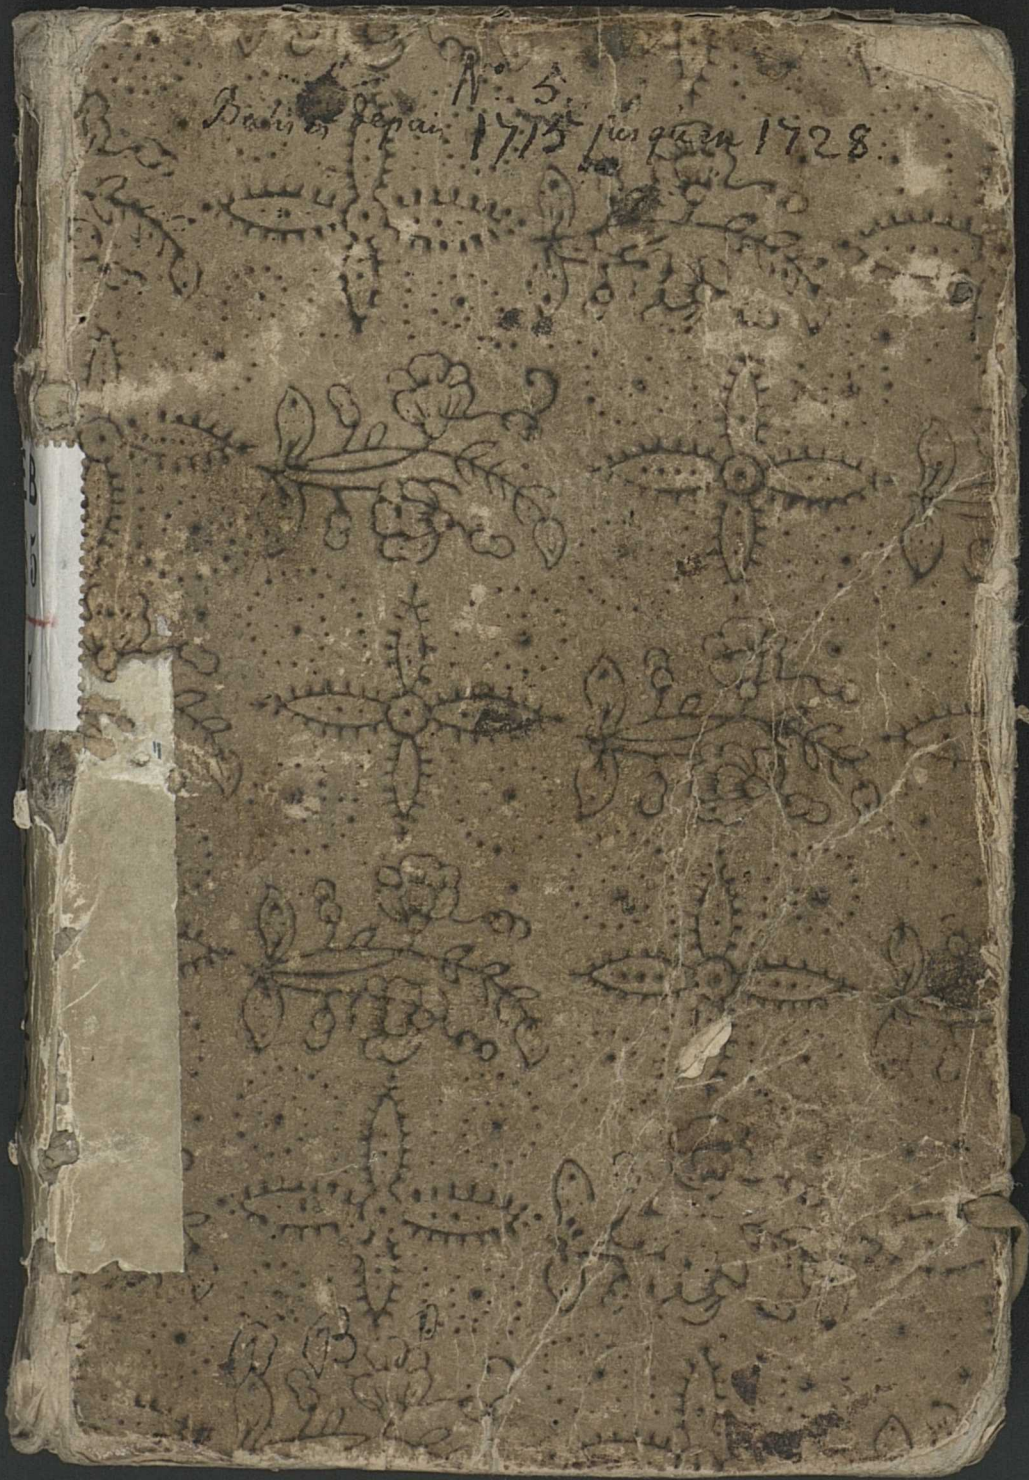 N° 5.
depui 1715 jusquen 1728
EB
5